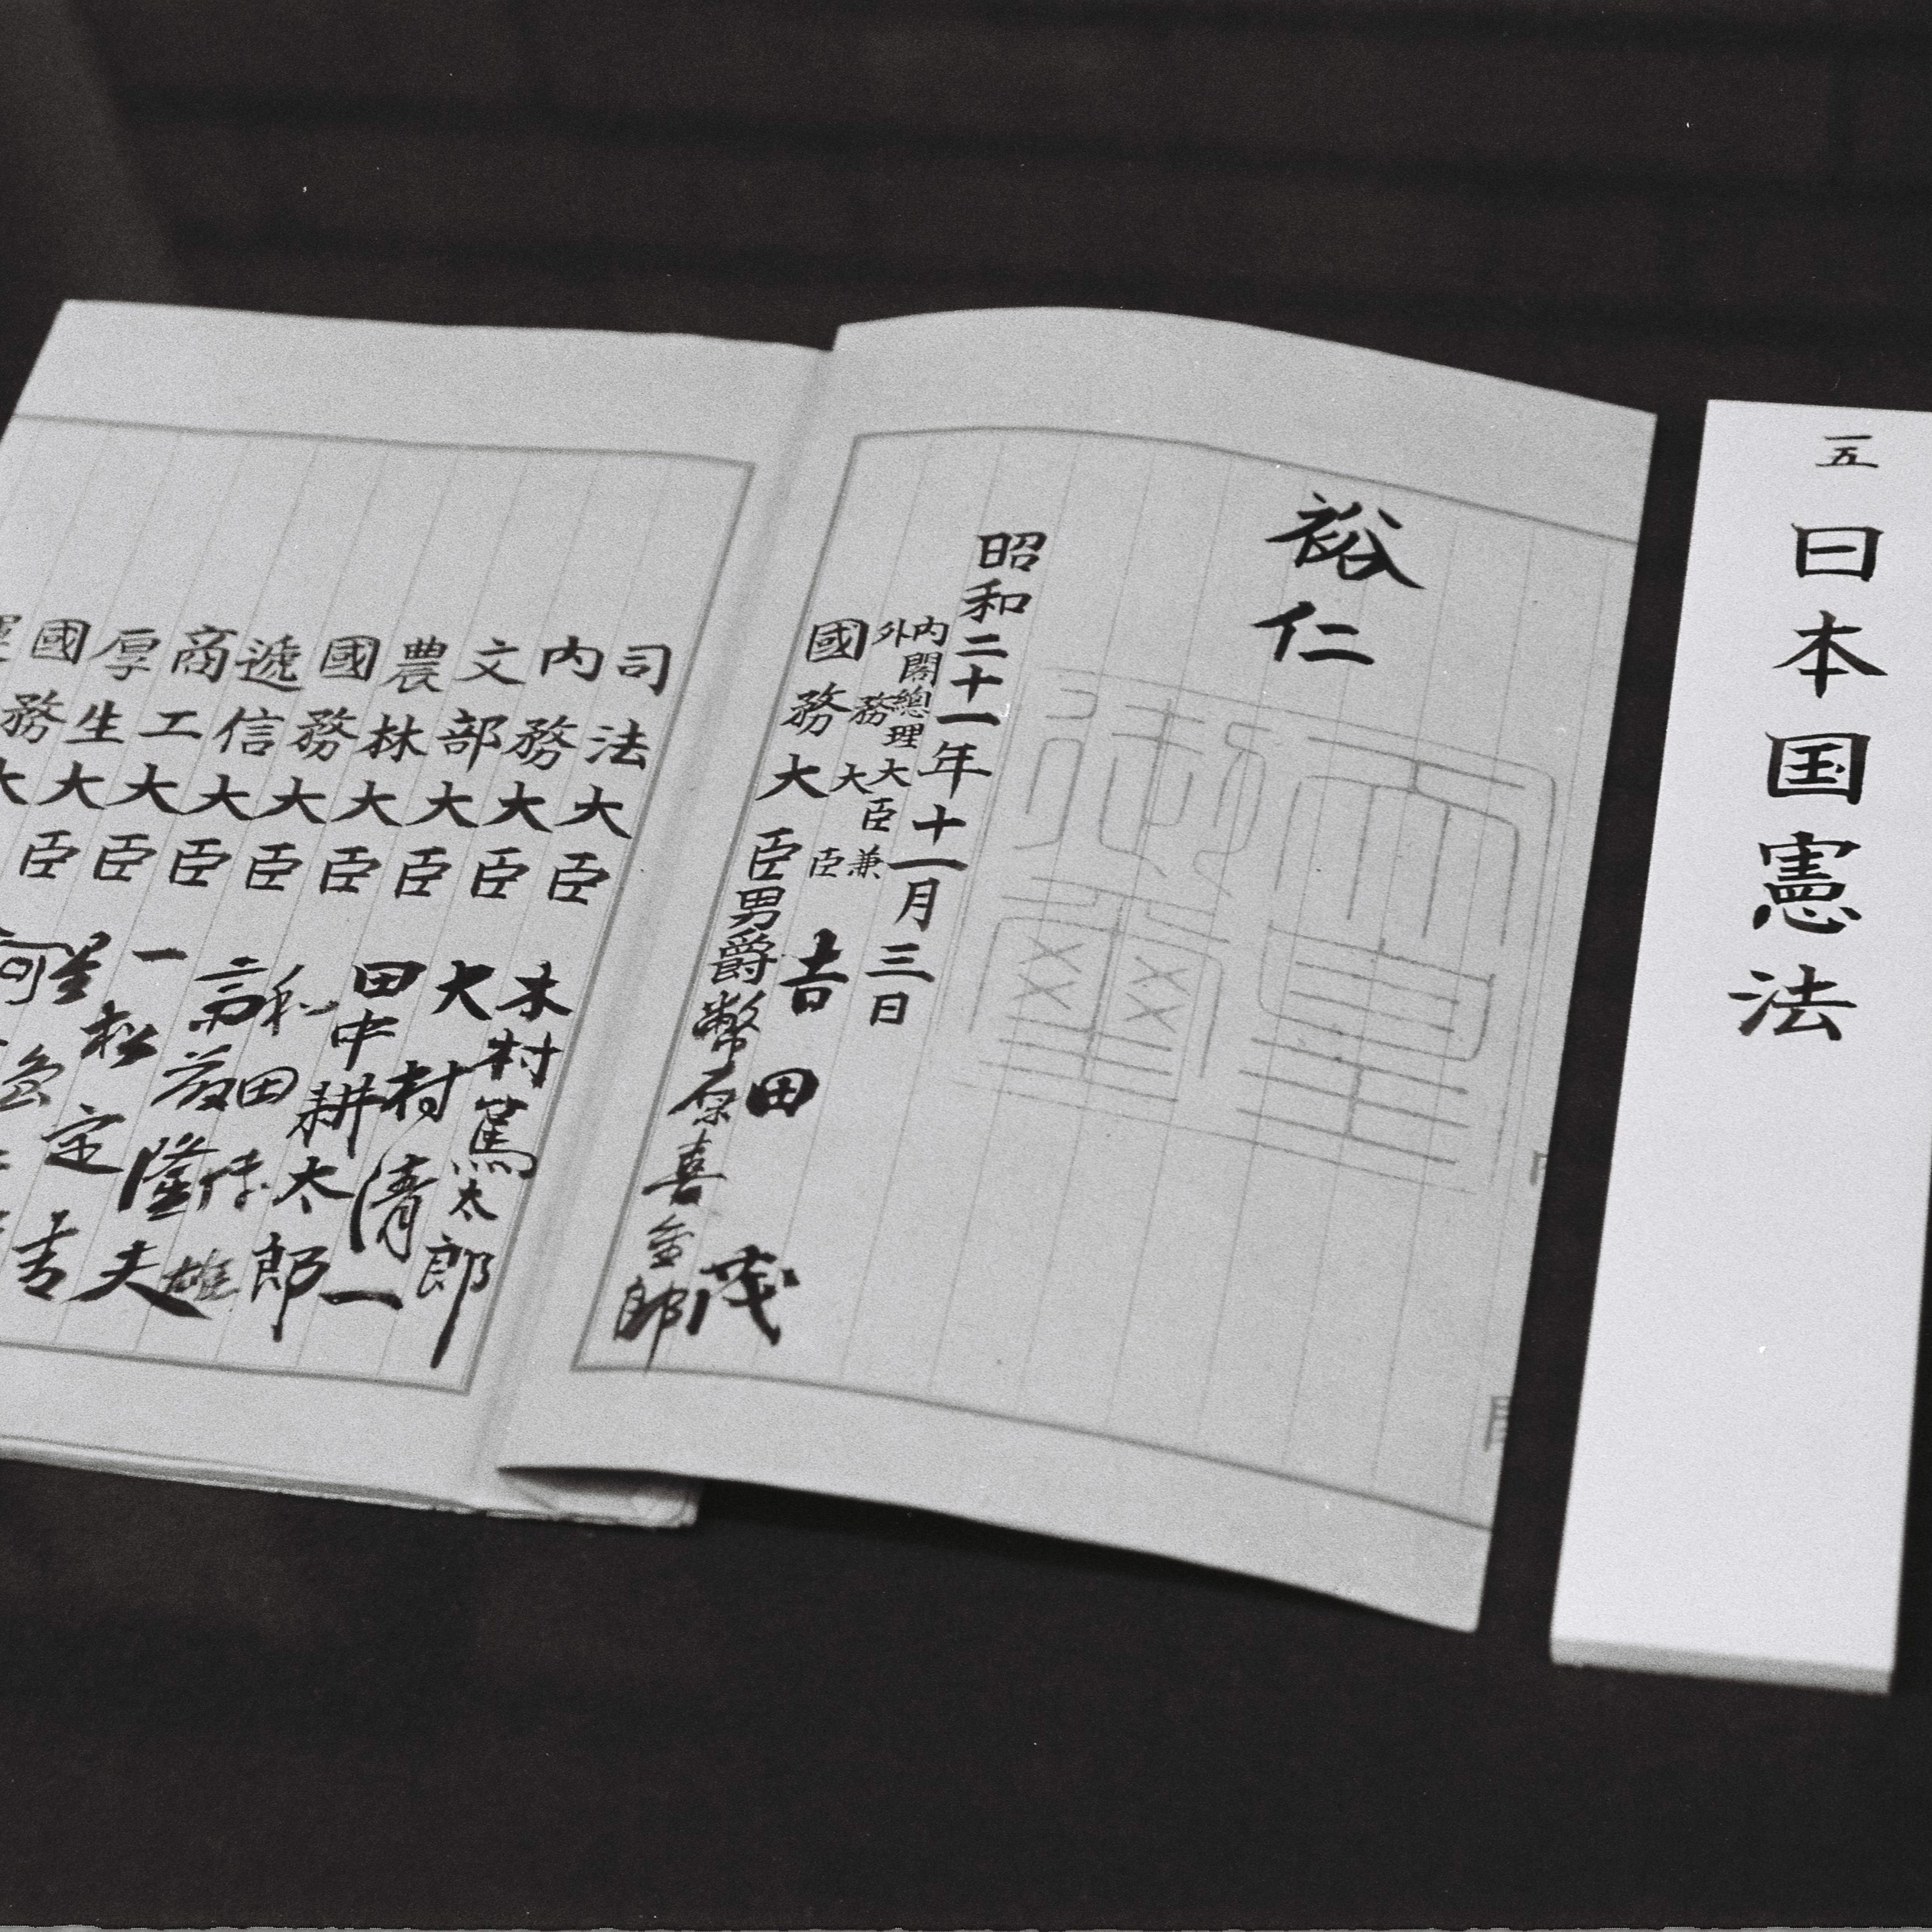 五 日本国憲法
裕仁
天皇
御璽
昭和二十一年十一月三日
内閣總理大臣兼
外務大臣 吉田茂
國務大臣男爵幣原喜重郎
司法大臣 木村篤太郎
内務大臣 大村清一
文部大臣 田中耕太郎
農林大臣 和田博雄
國務大臣 斎藤隆夫
遞信大臣 一松定吉
商工大臣 星島
厚生大臣 河
國務大臣